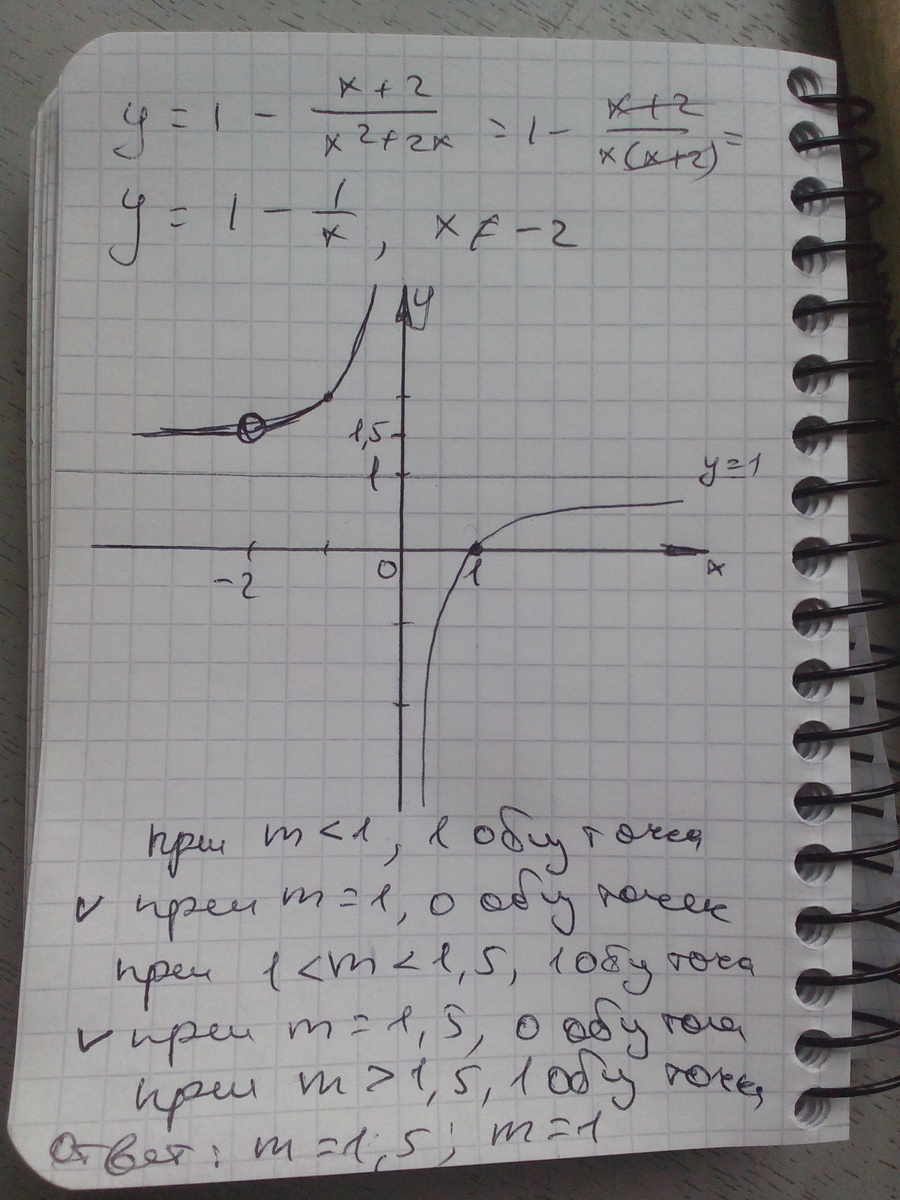 y = 1 - \frac{x+2}{x^2+2x} = 1 - \frac{x+2}{x(x+2)} =
y = 1 - \frac{1}{x}, x ≠ -2
y
1,5
1
y=1
-2
0
1
x
при m < 1, 1 общ точка
v при m = 1, 0 общ точек
при 1 < m < 1,5, 1 общ точа
v при m = 1,5, 0 общ точ
при m > 1,5, 1 общ точка
Ответ: m = 1,5; m = 1